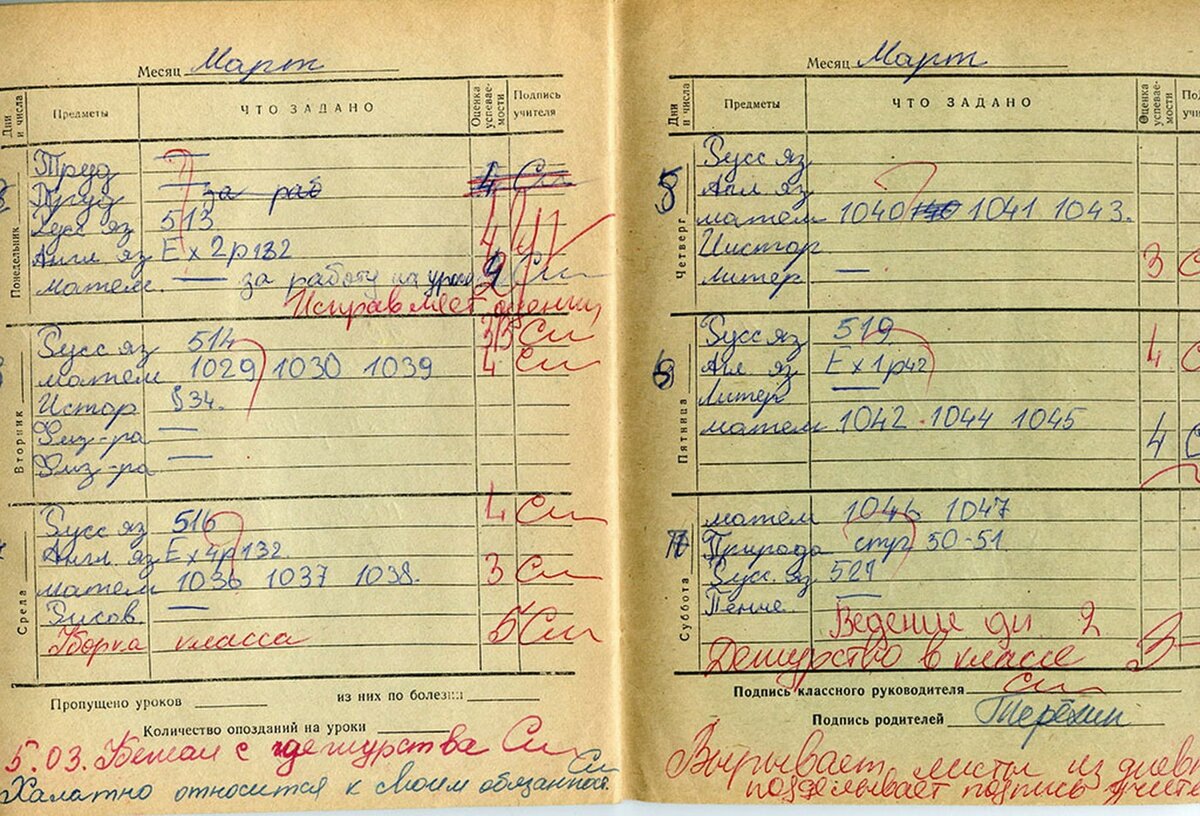 Месяц Март
Дни и числа Предметы ЧТО ЗАДАНО Оценка успевае-мости Подпись учителя
Понедельник
Труд —
Труд — за раб 4 См
Русс яз 513 4
Англ яз Ex 2 p 132
матем. — за работу на уроке 2 См
Исправляет оценки
Вторник
Русс яз 514 3/3 См
матем 1029 1030 1039 4 См
Истор §34.
Физ-ра —
Физ-ра —
Среда
Русс яз 516 4 См
Англ. яз Ex 4 p 132.
матем 1036 1037 1038. 3 См
Рисов. —
Уборка класса 5 См
Пропущено уроков из них по болезни
Количество опозданий на уроки
5.03. Бежал с дежурства См
Халатно относится к своим обязанност. См
Месяц Март
Дни и числа Предметы ЧТО ЗАДАНО Оценка успевае-мости
Четверг
Русс яз
Англ яз
матем 1040 1041 1043.
Истор
литер — 3
Пятница
Русс яз 519 4
Агл яз Ex 1 p 42
Литер —
матем 1042 1044 1045 4
Суббота
матем 1046 1047
Природа стр 50-51.
Русс. яз 521
Пение. —
Ведение дн. 2
Дежурство в классе 3
Подпись классного руководителя См
Подпись родителей Терёхин
Вырывает листы из дневн
подделывает подпись учите